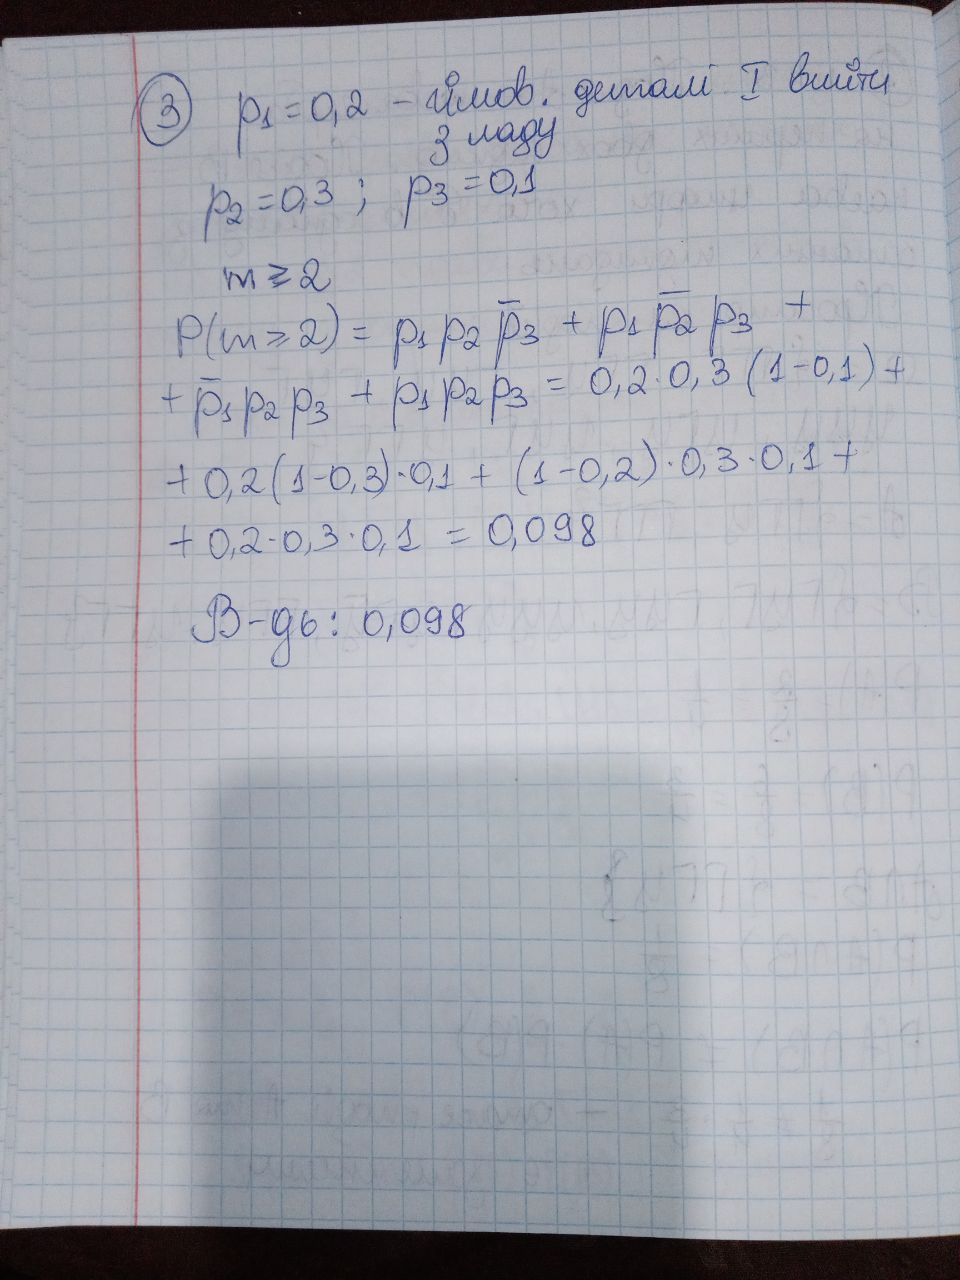 3 p₁ = 0,2 – ймов. деталі I вийти
з ладу
p₂ = 0,3 ; p₃ = 0,1
m ≥ 2
P(m ≥ 2) = p₁ p₂ p̅₃ + p₁ p̅₂ p₃ +
+ p̅₁ p₂ p₃ + p₁ p₂ p₃ = 0,2 · 0,3 (1 – 0,1) +
+ 0,2 (1 – 0,3) · 0,1 + (1 – 0,2) · 0,3 · 0,1 +
+ 0,2 · 0,3 · 0,1 = 0,098
В-дь: 0,098